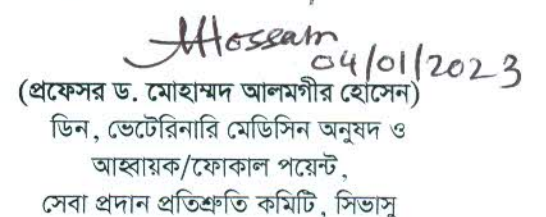 AHossain
04/01/2023
(প্রফেসর ড. মোহাম্মদ আলমগীর হোসেন)
ডিন, ভেটেরিনারি মেডিসিন অনুষদ ও
আহ্বায়ক/ফোকাল পয়েন্ট,
সেবা প্রদান প্রতিশ্রুতি কমিটি, সিভাসু